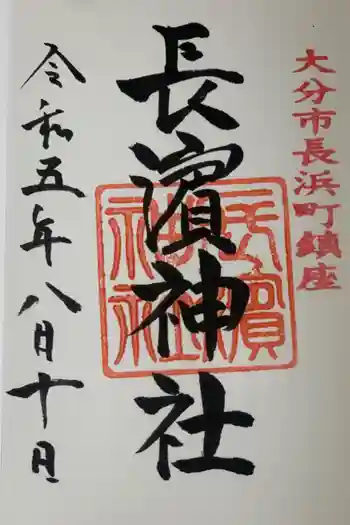 大分市長浜町鎮座
長濱神社
令和五年八月十日